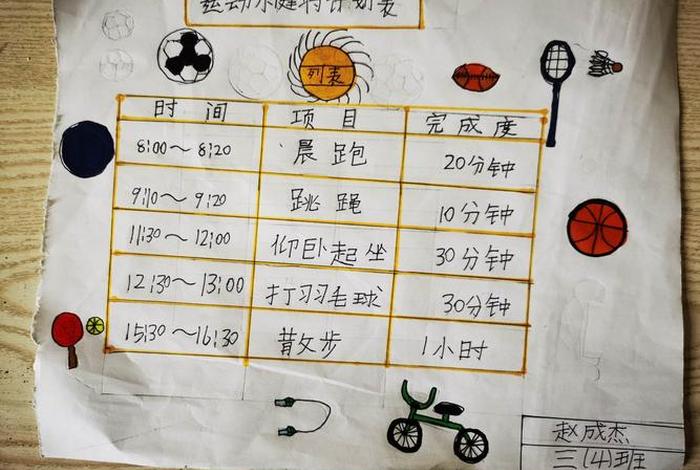 运动小健将计划表
列表
时 间 项 目 完 成 度
8:00～8:20 晨 跑 20分钟
9:10～9:20 跳 绳 10分钟
11:30～12:00 仰卧起坐 30分钟
12:30～13:00 打羽毛球 30分钟
15:30～16:30 散步 1小时
赵成杰
三(4)班